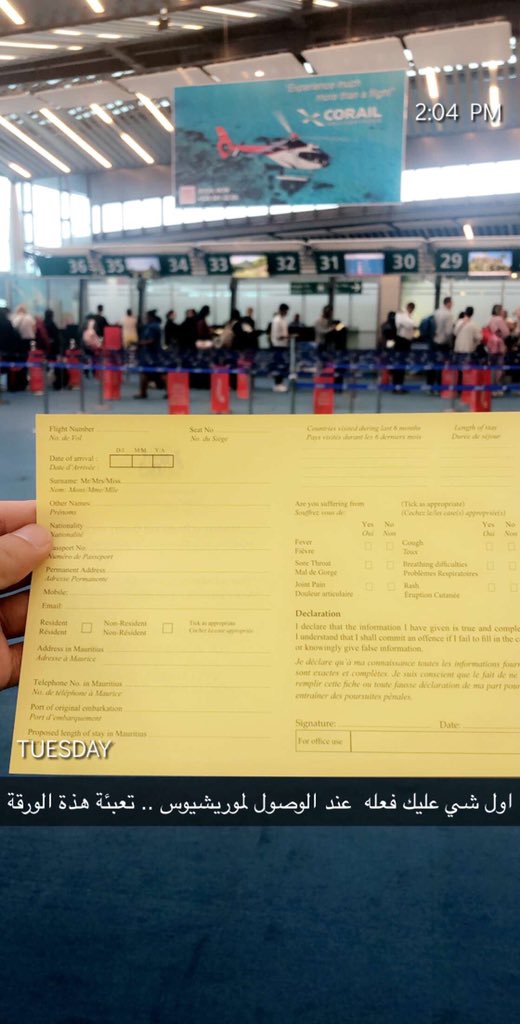 "Experience much
more than a flight"
CORAIL
2:04 PM
36 35 34 33 32 31 30 29
Flight Number
No. de Vol
Seat No
No. du Siège
Date of arrival :
Date d'Arrivée :
Surname: Mr/Mrs/Miss
Nom: Mons/Mme/Mlle
Other Names
Prénoms
Nationality
Nationalité
Passport No
Numéro de Passeport
Permanent Address
Adresse Permanente
Mobile:
Email:
Resident
Résident
Non-Resident
Non-Résident
Tick as appropriate
Cochez la case appropriée
Address in Mauritius
Adresse à Maurice
Telephone No. in Mauritius
No. de téléphone à Maurice
Port of original embarkation
Port d'embarquement
Proposed length of stay in Mauritius
Countries visited during last 6 months
Pays visités durant les 6 derniers mois
Length of stay
Durée de séjour
Are you suffering from
Souffrez vous de:
(Tick as appropriate)
(Cochez le/les case(s) appropriée(s)
Yes No Yes No
Oui Non Oui Non
Fever
Fièvre
Cough
Toux
Sore Throat
Mal de Gorge
Breathing difficulties
Problèmes Respiratoires
Joint Pain
Douleur articulaire
Rash
Éruption Cutanée
Declaration
I declare that the information I have given is true and comple
I understand that I shall commit an offence if I fail to fill in the c
or knowingly give false information.
Je déclare qu'à ma connaissance toutes les informations four
sont exactes et complètes. Je suis conscient que le fait de ne
remplir cette fiche ou toute fausse déclaration de ma part pour
entraîner des poursuites pénales.
Signature: Date:
For office use
TUESDAY
اول شي عليك فعله عند الوصول لموريشيوس .. تعبئة هذة الورقة